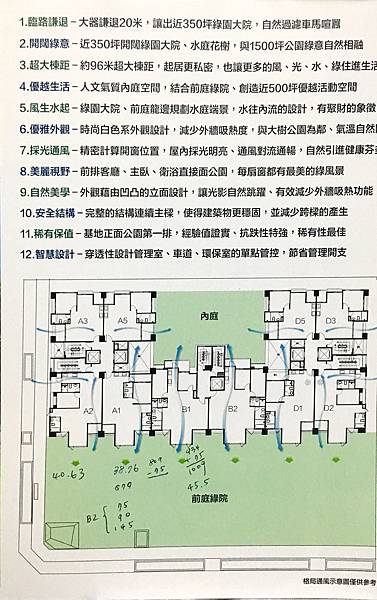 1.臨路謙退－大器謙退20米，讓出近350坪綠園大院，自然過濾車馬喧囂
2.開闊綠意－近350坪開闊綠園大院、水庭花樹，與1500坪公園綠意自然相融
3.超大棟距－約96米超大棟距，起居更私密，也讓更多的風、光、水、綠住進生活
4.優越生活－人文氣質內庭空間，結合前庭綠院、創造近500坪優越活動空間
5.風生水起－綠園大院、前庭龍邊規劃水庭端景，水往內流的設計，有聚財的象徵
6.優雅外觀－時尚白色系外觀設計，減少外牆吸熱度，與大樹公園為鄰、氣溫自然
7.採光通風－精密計算開窗位置，屋內採光明亮、通風對流通暢，自然引進健康芬
8.美麗視野－前排客廳、主臥、衛浴直接面公園，每扇窗都有最美的綠風景
9.自然美學－外觀藉由凹凸的立面設計，讓光影自然跳躍、有效減少外牆吸熱功能
10.安全結構－完整的結構連續主樑，使得建築物更穩固，並減少跨樑的產生
11.稀有保值－基地正面公園第一排，經驗值證實、抗跌性特強，稀有性最佳
12.智慧設計－穿透性設計管理室、車道、環保室的單點管控，節省管理開支
A3 A5 內庭 D5 D3
A2 A1 B1 B2 D1 D2
40.63
38.76
879
809
-75
434
+75
1009
45.5
前庭綠院
B2 { 75
90
145
格局通風示意圖僅供參考